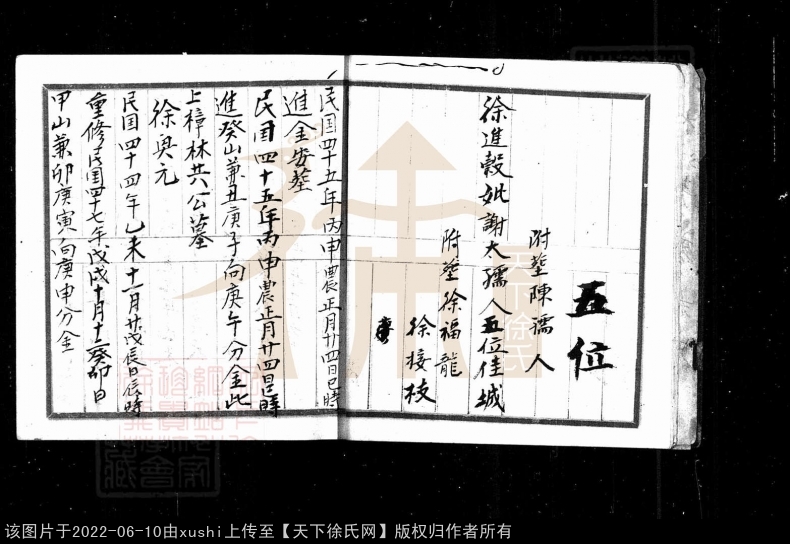 五位
附塟陳孺人
徐進穀妣謝太孺人五位佳城
附塟徐福龍
徐接枝
民国四十五年丙申農正月廿四日巳時
進金安塟
民国四十五年丙申農正月廿四日巳時
進癸山兼丑庚子向庚午分金此
上樟林共一公墓
徐奥元
民国四十四年乙未十一月廿戊辰日辰時
重修民国四十七年戊戌十月十二癸卯日
甲山兼卯庚寅向庚申分金
天下徐氏
该图片于2022-06-10由xushi上传至【天下徐氏网】版权归作者所有